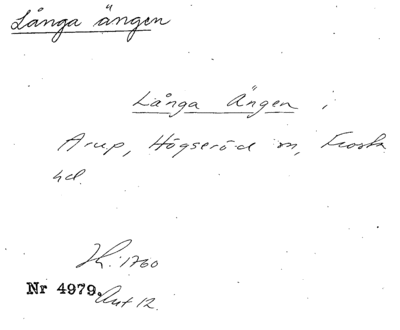 Långa ängen
Långa Ängen,
Arup, Högseröd sn, Frosta
hd.
1760
Nr 4979, Akt 12.